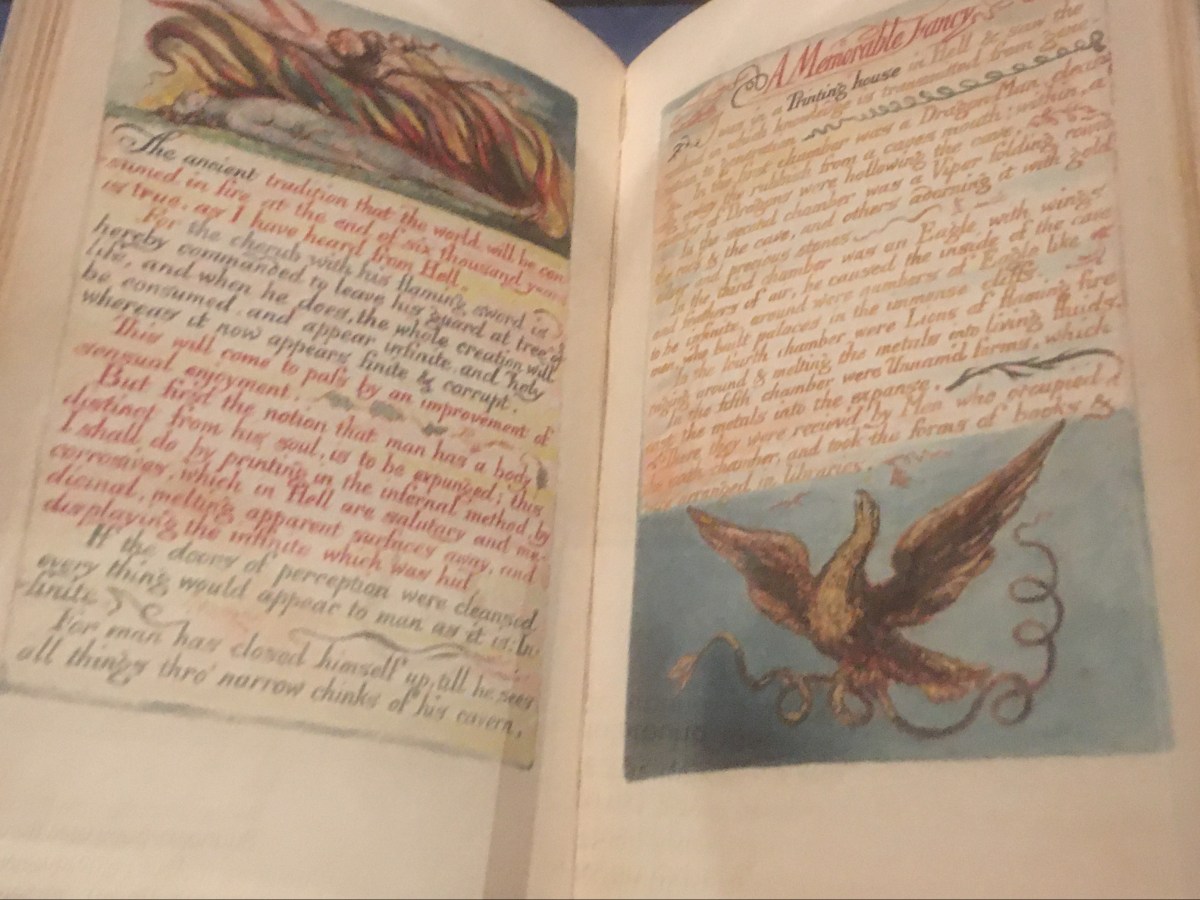 The ancient tradition that the world will be con-
sumed in fire at the end of six thousand years
is true. as I have heard from Hell.
For the cherub with his flaming sword is
hereby commanded to leave his guard at tree of
life, and when he does, the whole creation will
be consumed, and appear infinite. and holy
whereas it now appears finite & corrupt.
This will come to pass by an improvement of
sensual enjoyment.
But first the notion that man has a body
distinct from his soul, is to be expunged; this
I shall do by printing in the infernal method by
corrosives, which in Hell are salutary and me-
dicinal, melting apparent surfaces away, and
displaying the infinite which was hid.
If the doors of perception were cleansed
every thing would appear to man as it is: in-
-finite.
For man has closed himself up, till he sees
all things thro' narrow chinks of his cavern.
A Memorable Fancy
I was in a Printing house in Hell & saw the
method in which knowledge is transmitted from gene-
-ration to generation.
In the first chamber was a Dragon-Man, clearing
away the rubbish from a caves mouth; within, a
number of Dragons were hollowing the cave,
In the second chamber was a Viper folding round
the rock & the cave, and others adorning it with gold
silver and precious stones.
In the third chamber was an Eagle with wings
and feathers of air, he caused the inside of the cave
to be infinite, around were numbers of Eagle like
men, who built palaces in the immense cliffs.
In the fourth chamber were Lions of flaming fire
raging around & melting the metals into living fluids.
In the fifth chamber were Unnam'd forms, which
cast the metals into the expanse.
There they were reciev'd by Men who occupied
the sixth chamber, and took the forms of books &
were arranged in libraries.